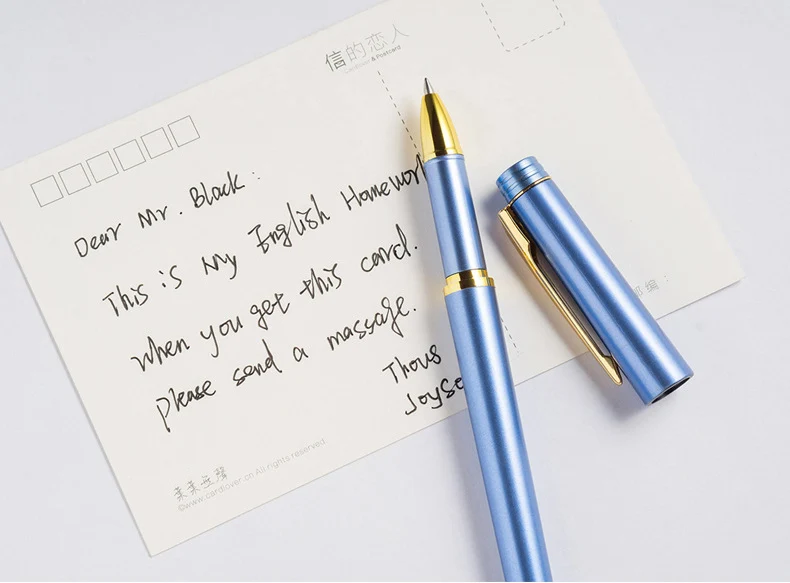 信的恋人
Cardlover & Postcard
Dear Mr. Black:
This is My English Homework
when you get this card.
please send a massage.
Thous
Joyse
邮编:
©www.cardlover.cn All rights reserved